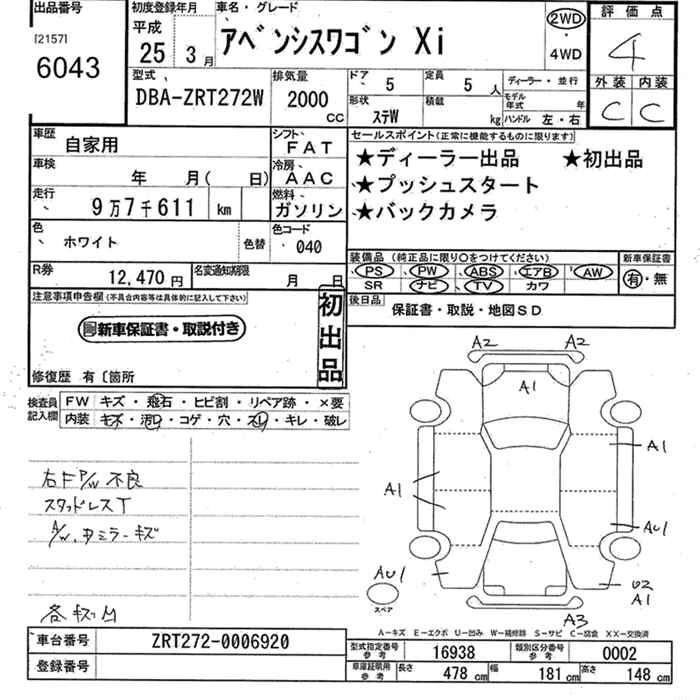 出品番号
[2157]
6043
初度登録年月
平成
25年 3月
車名・グレード
アベンシスワゴン Xi
2WD
・
4WD
評価点
4
外装 内装
C C
型式
DBA-ZRT272W
排気量
2000 CC
ドア 5
定員 5人
形状 ステW
積載 kg
ディーラー・並行
モデル年式 年
ハンドル 左・右
車歴 自家用
シフト FAT
車検 年 月( 日)
冷房 AAC
走行 9万7千611 km
燃料 ガソリン
色 ホワイト 色替
色コード 040
R券 12,470円
名変通知期限 月 日
セールスポイント(正常に機能するものに限ります)
★ディーラー出品 ★初出品
★プッシュスタート
★バックカメラ
装備品 (純正品に限り○をつけてください)
PS PW ABS エアB AW
SR ナビ TV カワ
新車保証書
有・無
後日品 保証書・取説・地図SD
注意事項申告欄(不具合内容等は具体的に記入して下さい)
新車保証書・取説付き
初出品
修復歴 有〔箇所
検査員記入欄
FW キズ・飛石・ヒビ割・リペア跡・×要
内装 キズ・汚れ・コゲ・穴・スレ・キレ・破レ
右F P/W 不良
スタッドレスT
A/W、ドミラーキズ
各キズ凹
A2 A2
A1
A1
A1
AU1
AU1
スペア
U2
A1
A3
A-キズ E-エクボ U-凹み W-補修跡 S-サビ C-腐食 XX-交換済
車台番号 ZRT272-0006920
登録番号
型式指定番号参考 16938
類別区分番号参考 0002
車庫証明用参考 長さ 478cm 幅 181cm 高さ 148cm